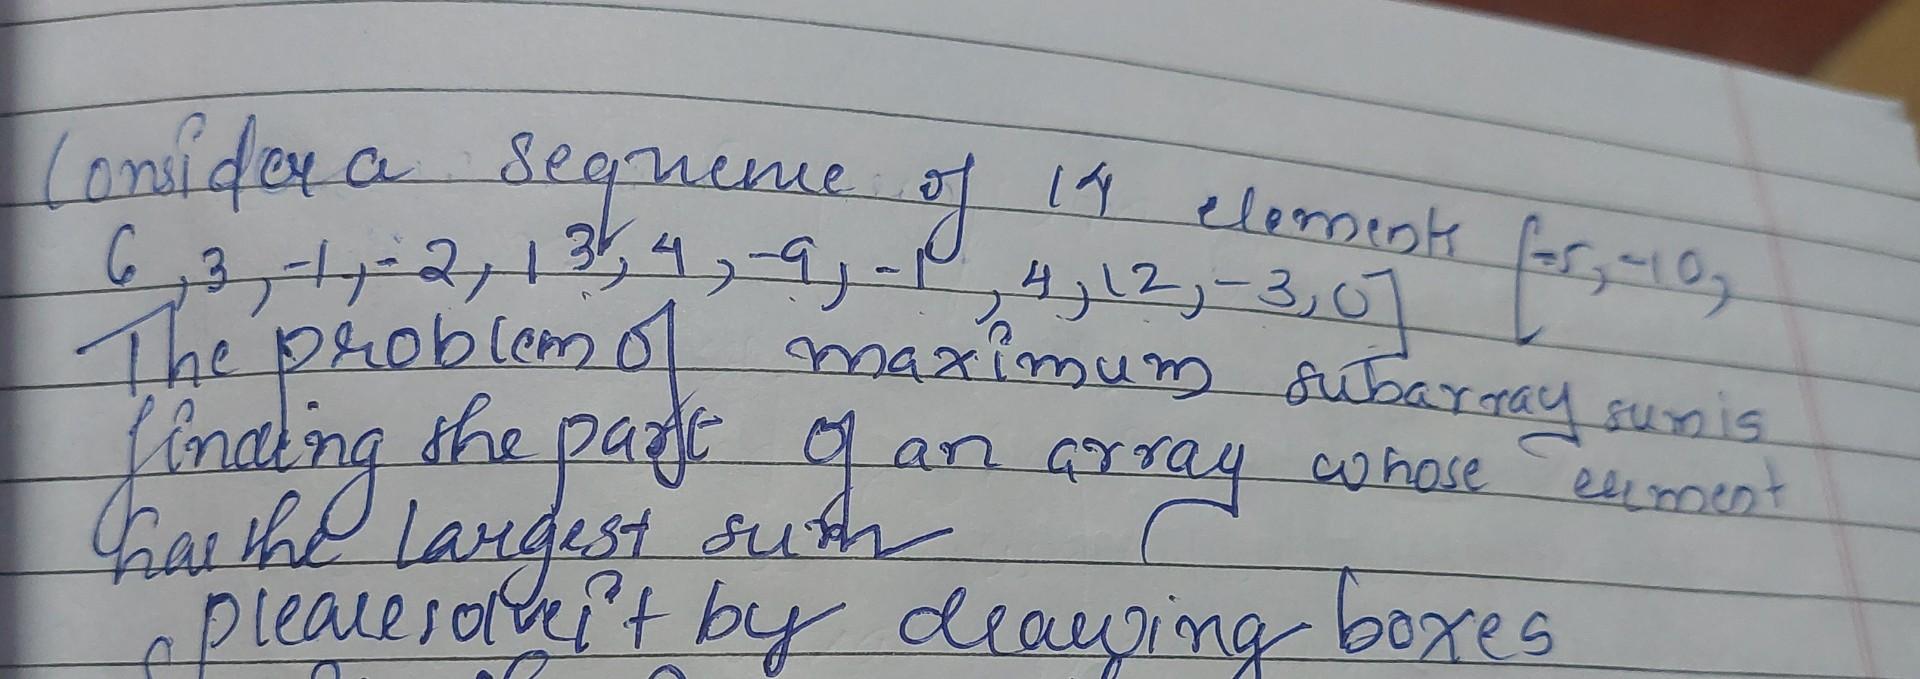 Consider a sequence of 14 element [-5, -10,
6, 3, -1, -2, 13, 4, -9, -1, 4, 12, -3, 0]
The problem of maximum subarray sum is
finding the part of an array whose element
has the largest sum
please solve it by drawing boxes